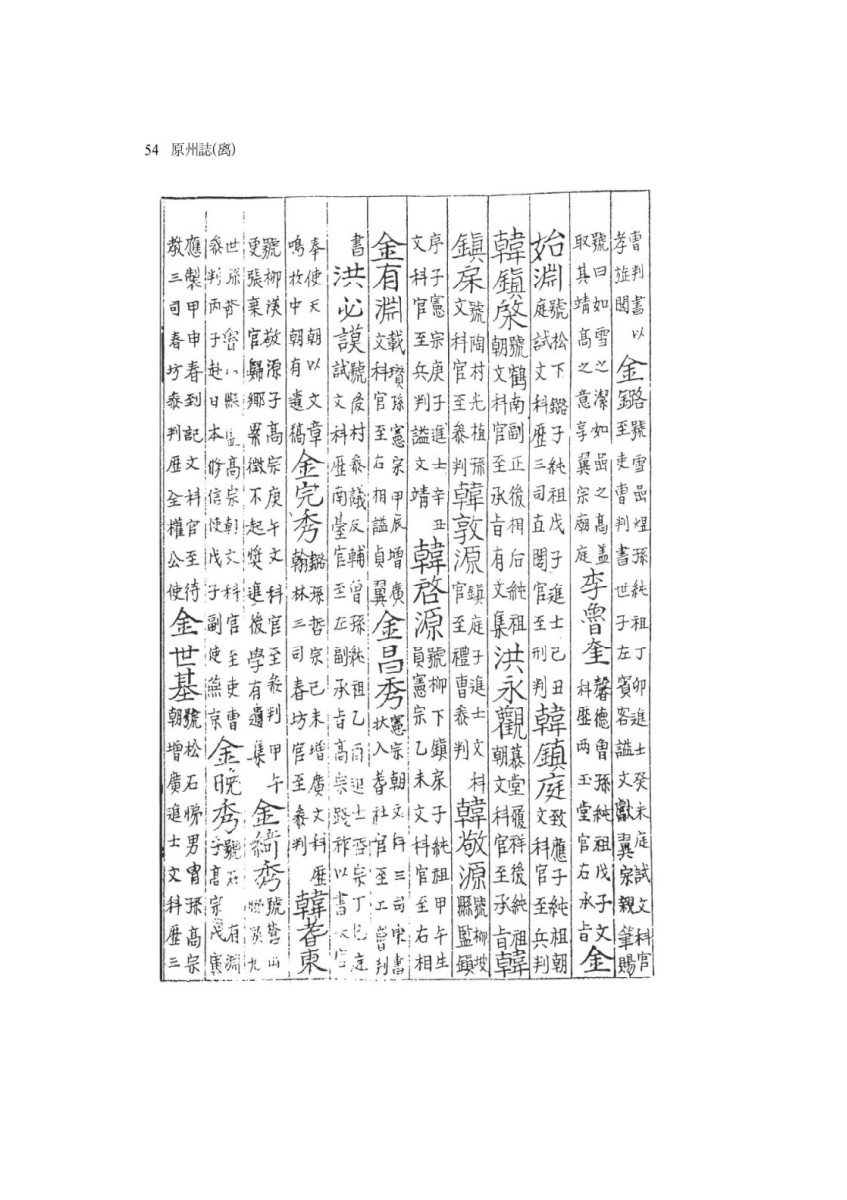 曹判書以孝旌閭金鏴號雪嵒煜孫純祖丁卯進士癸未庭試文科官至吏曹判書世子左賓客諡文獻翼宗親筆賜
號曰如雪之潔如嵒之高盖取其靖高之意享翼宗廟庭李魯奎馨德曾孫純祖戊子文科歷兩玉堂官右承旨金
始淵號松下鏴子純祖戊子進士己丑庭試文科歷三司直閣官至刑判韓鎭庭致應子純祖朝文科官至兵判
韓鎭棨號鶴南副正後相后純祖朝文科官至承旨有文集洪永觀慕堂履祥後純祖朝文科官至承旨韓
鎭號陶村光植孫文科官至參判韓敦源鎭庭子進士文科官至禮曹參判韓敬源號柳坡縣監鎭
序子憲宗庚子進士辛丑文科官至兵判諡文靖韓啓源號柳下鎭子純祖甲午生員憲宗乙未文科官至右相
金有淵載瓚孫憲宗甲辰增廣文科官至右相諡貞翼金昌秀憲宗朝文科三司中書狀入耆社官至工曹判
書洪必謨號村參議反輔曾孫純祖乙酉進士哲宗丁巳庭試文科歷南臺官至左副承旨高宗踐祚以書
奉使天朝以文章鳴於中朝有遺稿金完秀鏴孫哲宗己未增廣文科歷翰林三司春坊官至參判韓耆東
號柳漢敬源子高宗庚午文科官至參判甲午更張棄官歸鄕累徵不起奬進後學有遺集金綺秀號蒼山
世孫魯縣監高宗朝文科官至吏曹參判丙子赴日本修信使戊子副使燕京金晩秀號石有淵子高宗戊寅
應製甲申春到記文科官至待敎三司春坊參判歷全權公使金世基號松石悌男胄孫高宗朝增廣進士文科歷三
54 原州誌(离)